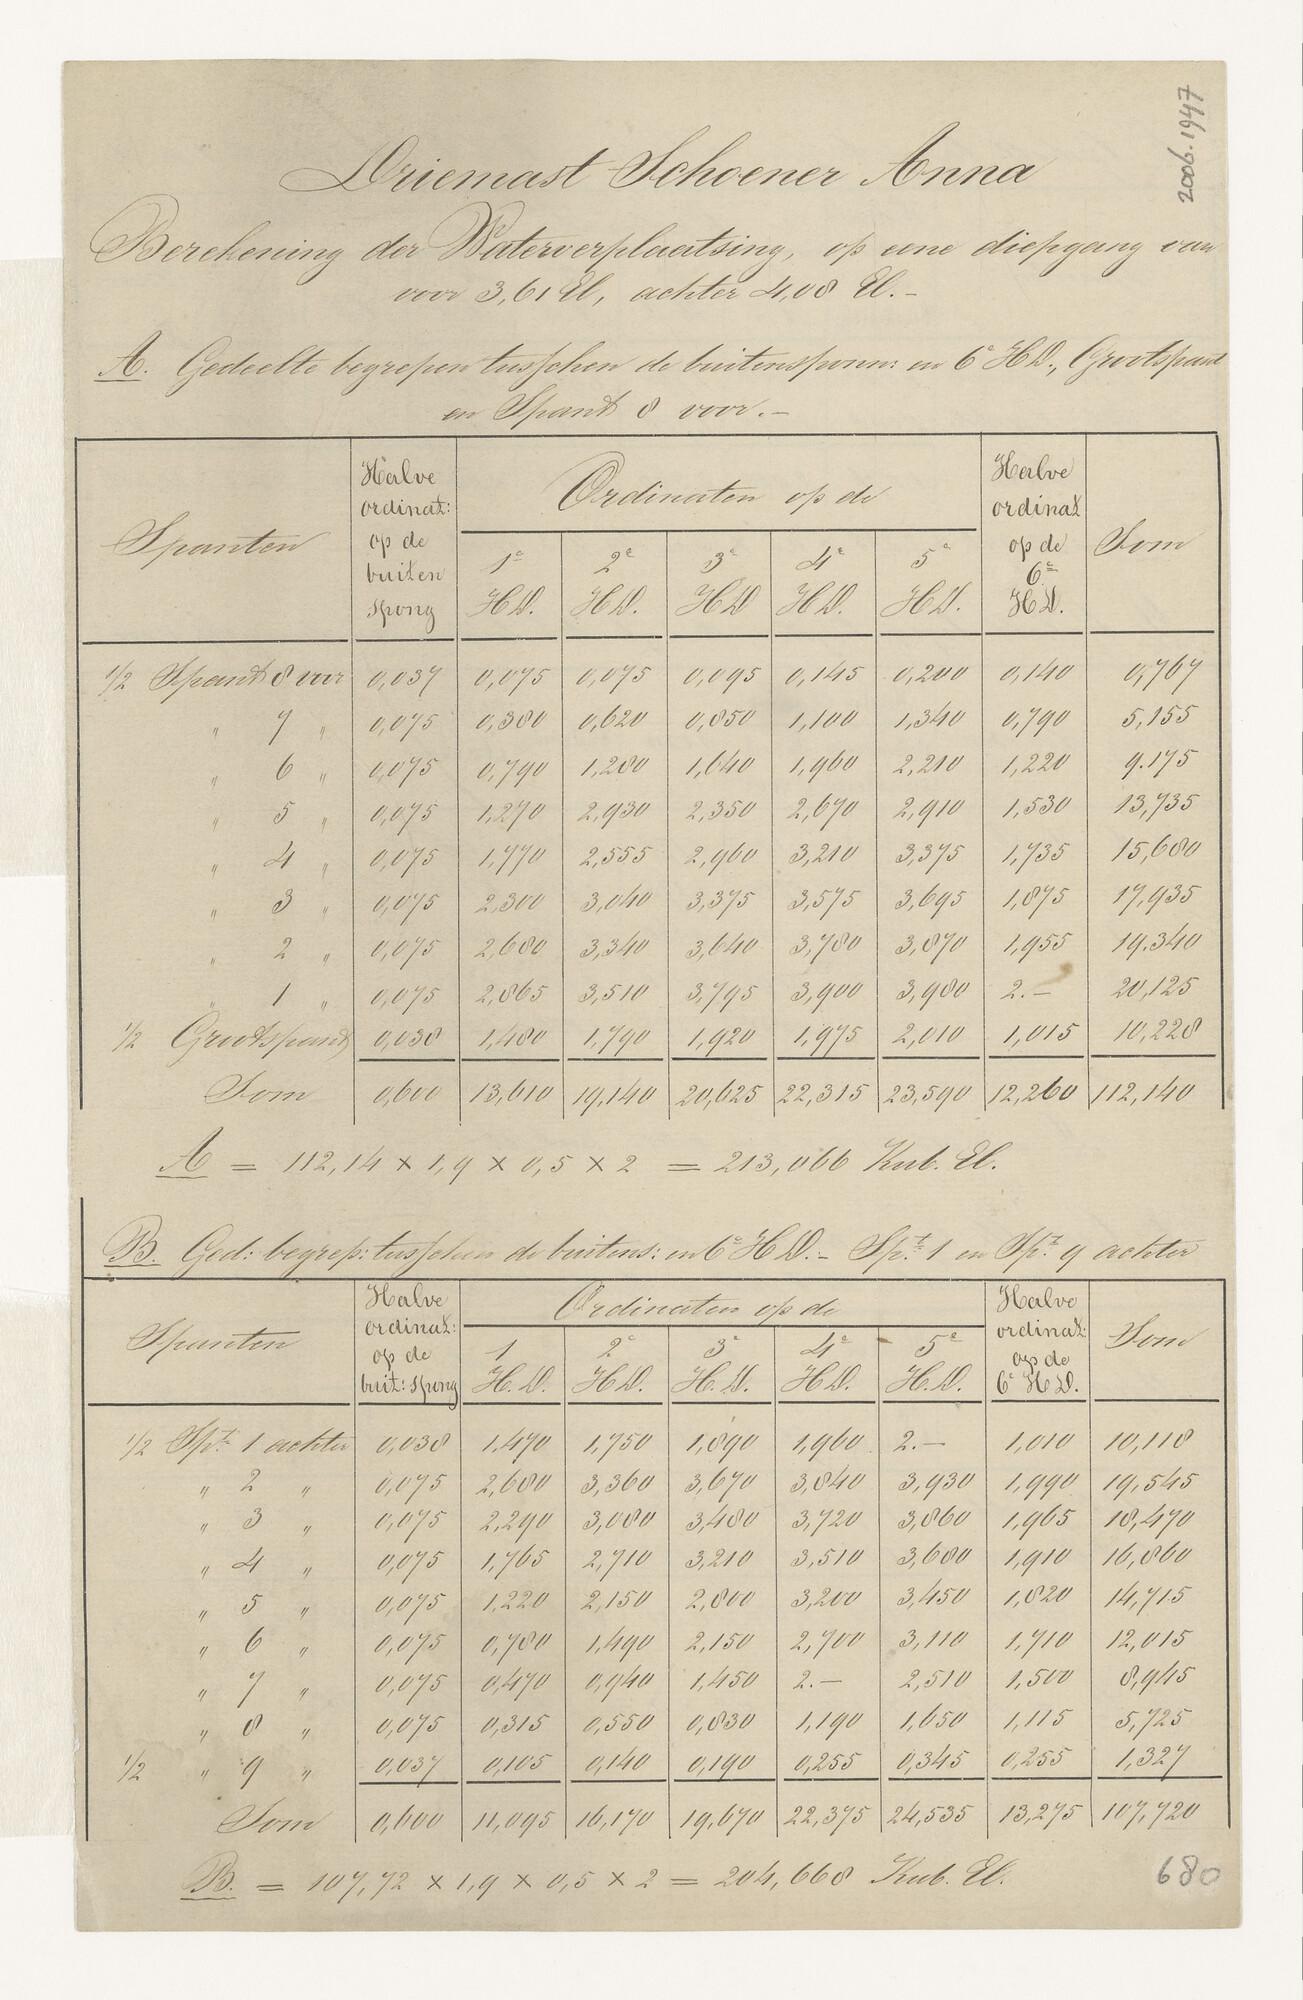 2006.1947
Driemast Schoener Anna
Berekening der Waterverplaatsing, op eene diepgang van
voor 3,61 El, achter 4,08 El.-
A. Gedeelte begrepen tusschen de buitensponn: en 6e HD., Grootspant
en Spant 8 voor.-
Spanten | Halve ordinat: op de buiten spong | Ordinaten op de | Halve ordinat op de 6e HD. | Som
1e HD. | 2e HD. | 3e HD | 4e HD. | 5e HD.
1/2 Spant 8 voor | 0,037 | 0,075 | 0,075 | 0,095 | 0,145 | 0,200 | 0,140 | 0,767
" 7 " | 0,075 | 0,380 | 0,620 | 0,850 | 1,100 | 1,340 | 0,790 | 5,155
" 6 " | 0,075 | 0,790 | 1,280 | 1,640 | 1,960 | 2,210 | 1,220 | 9.175
" 5 " | 0,075 | 1,270 | 2,930 | 2,350 | 2,670 | 2,910 | 1,530 | 13,735
" 4 " | 0,075 | 1,770 | 2,555 | 2,960 | 3,210 | 3,375 | 1,735 | 15,680
" 3 " | 0,075 | 2,300 | 3,040 | 3,375 | 3,575 | 3,695 | 1,875 | 17,935
" 2 " | 0,075 | 2,680 | 3,340 | 3,640 | 3,780 | 3,870 | 1,955 | 19.340
" 1 " | 0,075 | 2,865 | 3,510 | 3,795 | 3,900 | 3,980 | 2.- | 20,125
1/2 Grootspant | 0,038 | 1,480 | 1,790 | 1,920 | 1,975 | 2,010 | 1,015 | 10,228
Som | 0,600 | 13,610 | 19,140 | 20,625 | 22,315 | 23,590 | 12,260 | 112,140
A = 112,14 × 1,9 × 0,5 × 2 = 213,066 Kub. El.
B. Ged: begrep: tusschen de buitens: en 6e HD.- Spt. 1 en Spt. 9 achter
Spanten | Halve ordinat: op de buit: spong | Ordinaten op de | Halve ordinat: op de 6e HD. | Som
1 H.D. | 2e HD. | 3e H.D. | 4e HD. | 5e H.D.
1/2 Spt. 1 achter | 0,038 | 1,470 | 1,750 | 1,890 | 1,960 | 2.- | 1,010 | 10,118
" 2 " | 0,075 | 2,680 | 3,360 | 3,670 | 3,840 | 3,930 | 1,990 | 19,545
" 3 " | 0,075 | 2,290 | 3,080 | 3,480 | 3,720 | 3,860 | 1,965 | 18,470
" 4 " | 0,075 | 1,765 | 2,710 | 3,210 | 3,510 | 3,680 | 1,910 | 16,860
" 5 " | 0,075 | 1,220 | 2,150 | 2,800 | 3,200 | 3,450 | 1,820 | 14,715
" 6 " | 0,075 | 0,780 | 1,490 | 2,150 | 2,700 | 3,110 | 1,710 | 12,015
" 7 " | 0,075 | 0,470 | 0,940 | 1,450 | 2.- | 2,510 | 1,500 | 8,945
" 8 " | 0,075 | 0,315 | 0,550 | 0,830 | 1,190 | 1,650 | 1,115 | 5,725
1/2 " 9 " | 0,037 | 0,105 | 0,140 | 0,190 | 0,255 | 0,345 | 0,255 | 1,327
Som | 0,600 | 11,095 | 16,170 | 19,670 | 22,375 | 24,535 | 13,275 | 107,720
B. = 107,72 × 1,9 × 0,5 × 2 = 204,668 Kub. El.
680